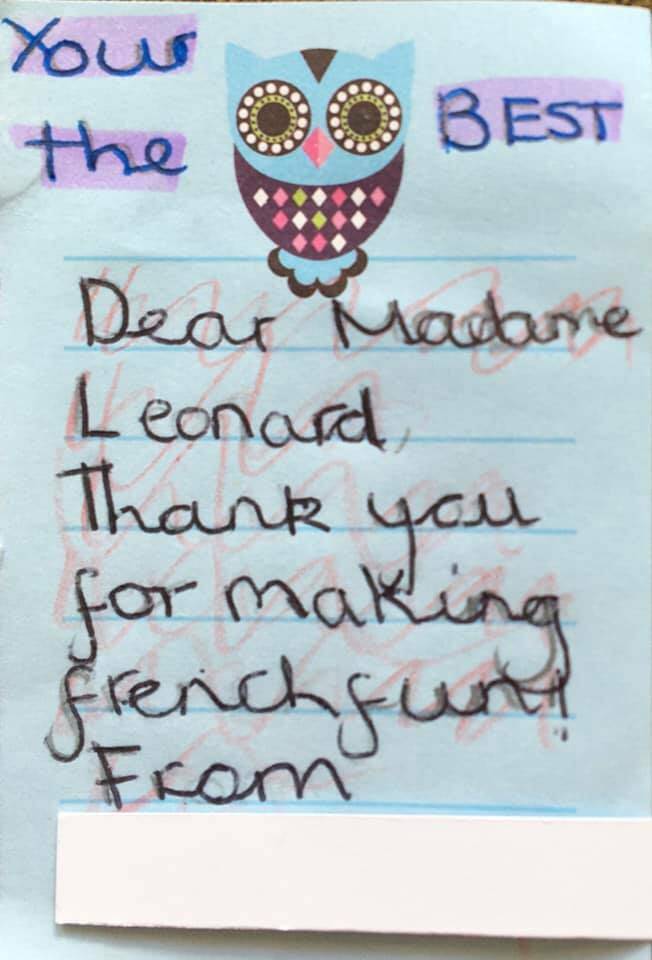 Your
the
BEST
Dear Madame
Leonard,
Thank you
for making
french fun!
From